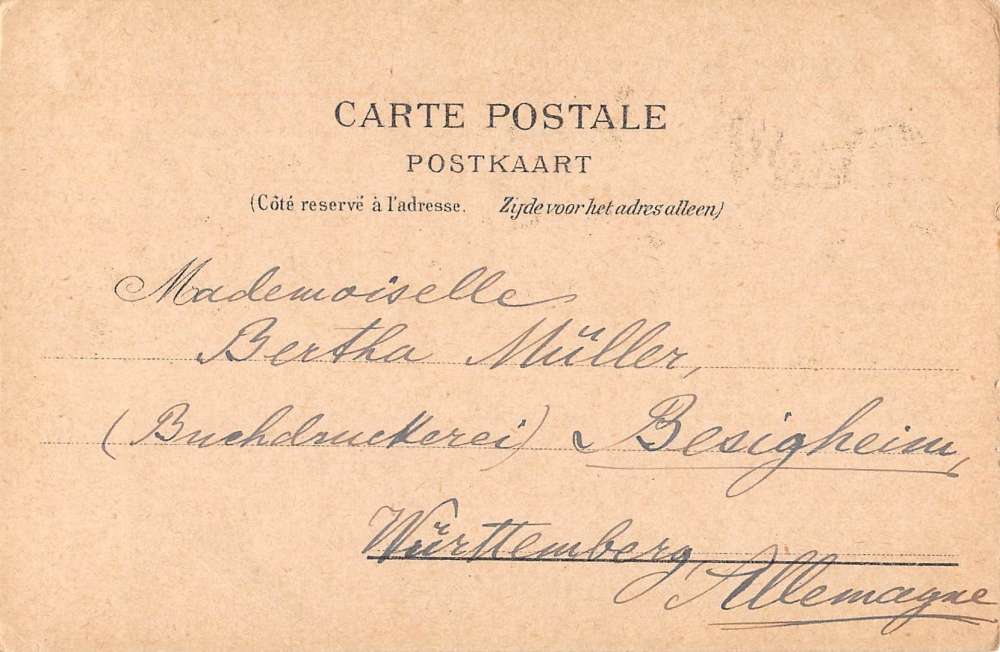 CARTE POSTALE
POSTKAART
(Côté reservé à l'adresse. Zijde voor het adres alleen)
Mademoiselle
Bertha Müller,
(Buchdruckerei) Besigheim,
Württemberg,
Allemagne